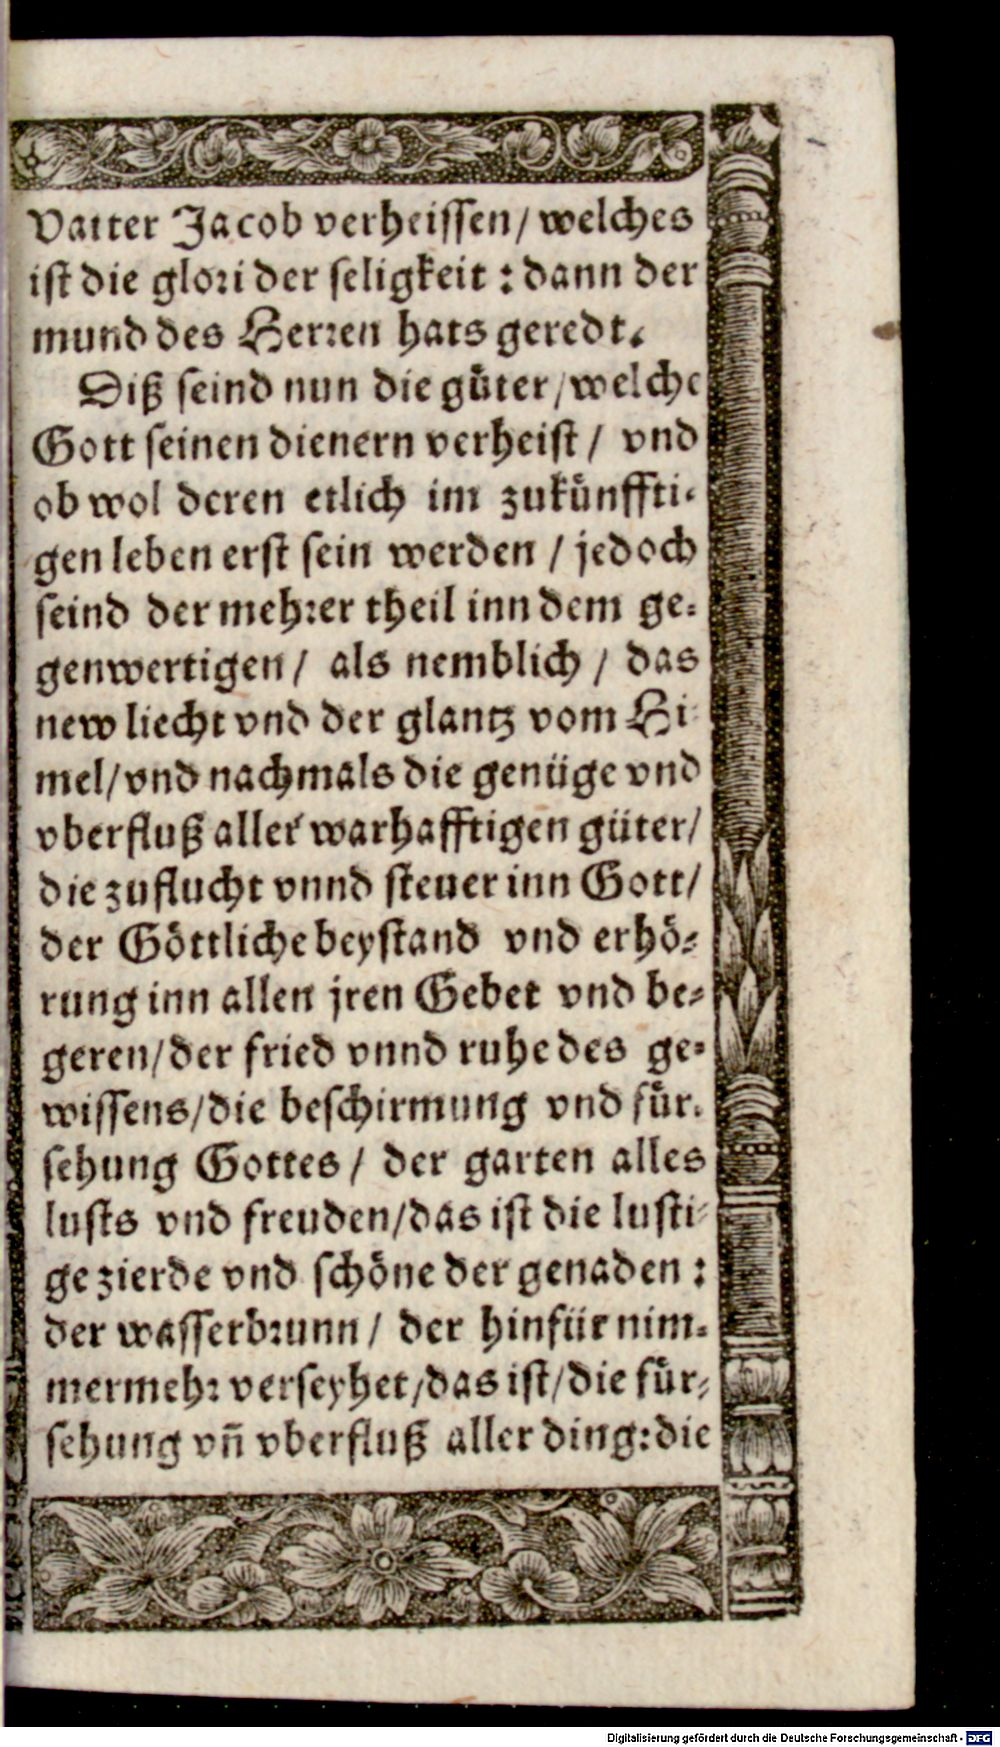 Vatter Jacob verheissen/ welches
ist die glori der seligkeit : dann der
mund des Herren hats geredt.
Diß seind nun die güter/ welche
Gott seinen dienern verheist/ vnd
ob wol deren etlich im zukünffti-
gen leben erst sein werden / jedoch
seind der mehrer theil inn dem ge-
genwertigen/ als nemblich / das
new liecht vnd der glantz vom Hi-
mel/ vnd nachmals die genüge vnd
vberfluß aller warhafftigen güter/
die zuflucht vnnd steuer inn Gott/
der Göttliche beystand vnd erhö-
rung inn allen jren Gebet vnd be-
geren/ der fried vnnd ruhe des ge-
wissens/ die beschirmung vnd für-
sehung Gottes/ der garten alles
lusts vnd freuden/ das ist die lusti-
ge zierde vnd schöne der genaden :
der wasserbrunn/ der hinfür nim-
mermehr verseyhet/ das ist/ die für-
sehung vñ vberfluß aller ding: die
Digitalisierung gefördert durch die Deutsche Forschungsgemeinschaft - DFG